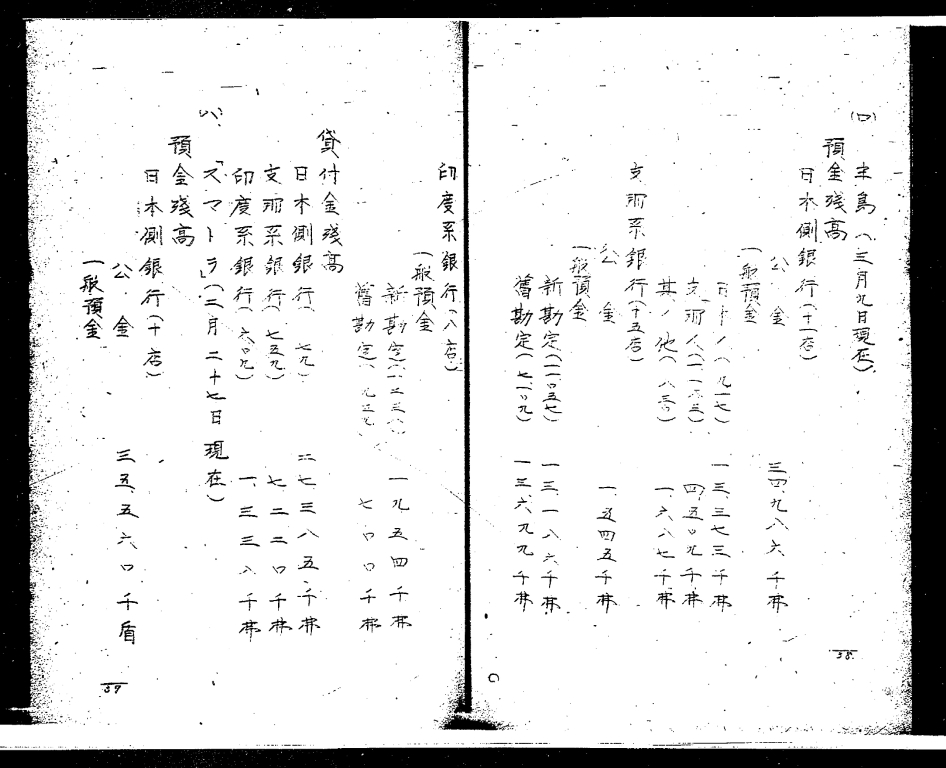 (ロ)
半島(三月九日現在)
預金残高
日本側銀行(十一店)
公金 三四、九八六、千弗
一般預金
日本人(八九一七) 一三、三七三千弗
支那人( 四、五〇九千弗
其ノ他(八三〇) 一、六八七千弗
支那系銀行(十五店)
公金 一、五四五千弗
一般預金
新勘定(一一〇五七) 一三、一八六千弗
舊勘定(七一〇九) 一三六、九九九千弗
38.
印度系銀行(八店)
一般預金
新勘定( 一九五四千弗
舊勘定( 七〇〇千弗
貸付金残高
日本側銀行(七九) 二七三八五千弗
支那系銀行(七五九) 七二二〇千弗
印度系銀行(六〇九) 一、三三八千弗
(ハ)
「スマトラ」(二月二十七日現在)
預金残高
日本側銀行(十店)
公金 三五、五六〇千盾
一般預金
39